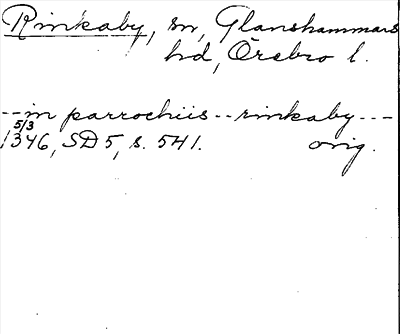 Rinkaby, sn, Glanshammars
hd, Örebro l.
--in parrochiis--rinkaby---
5/3
1346, SD5, s. 541. orig.